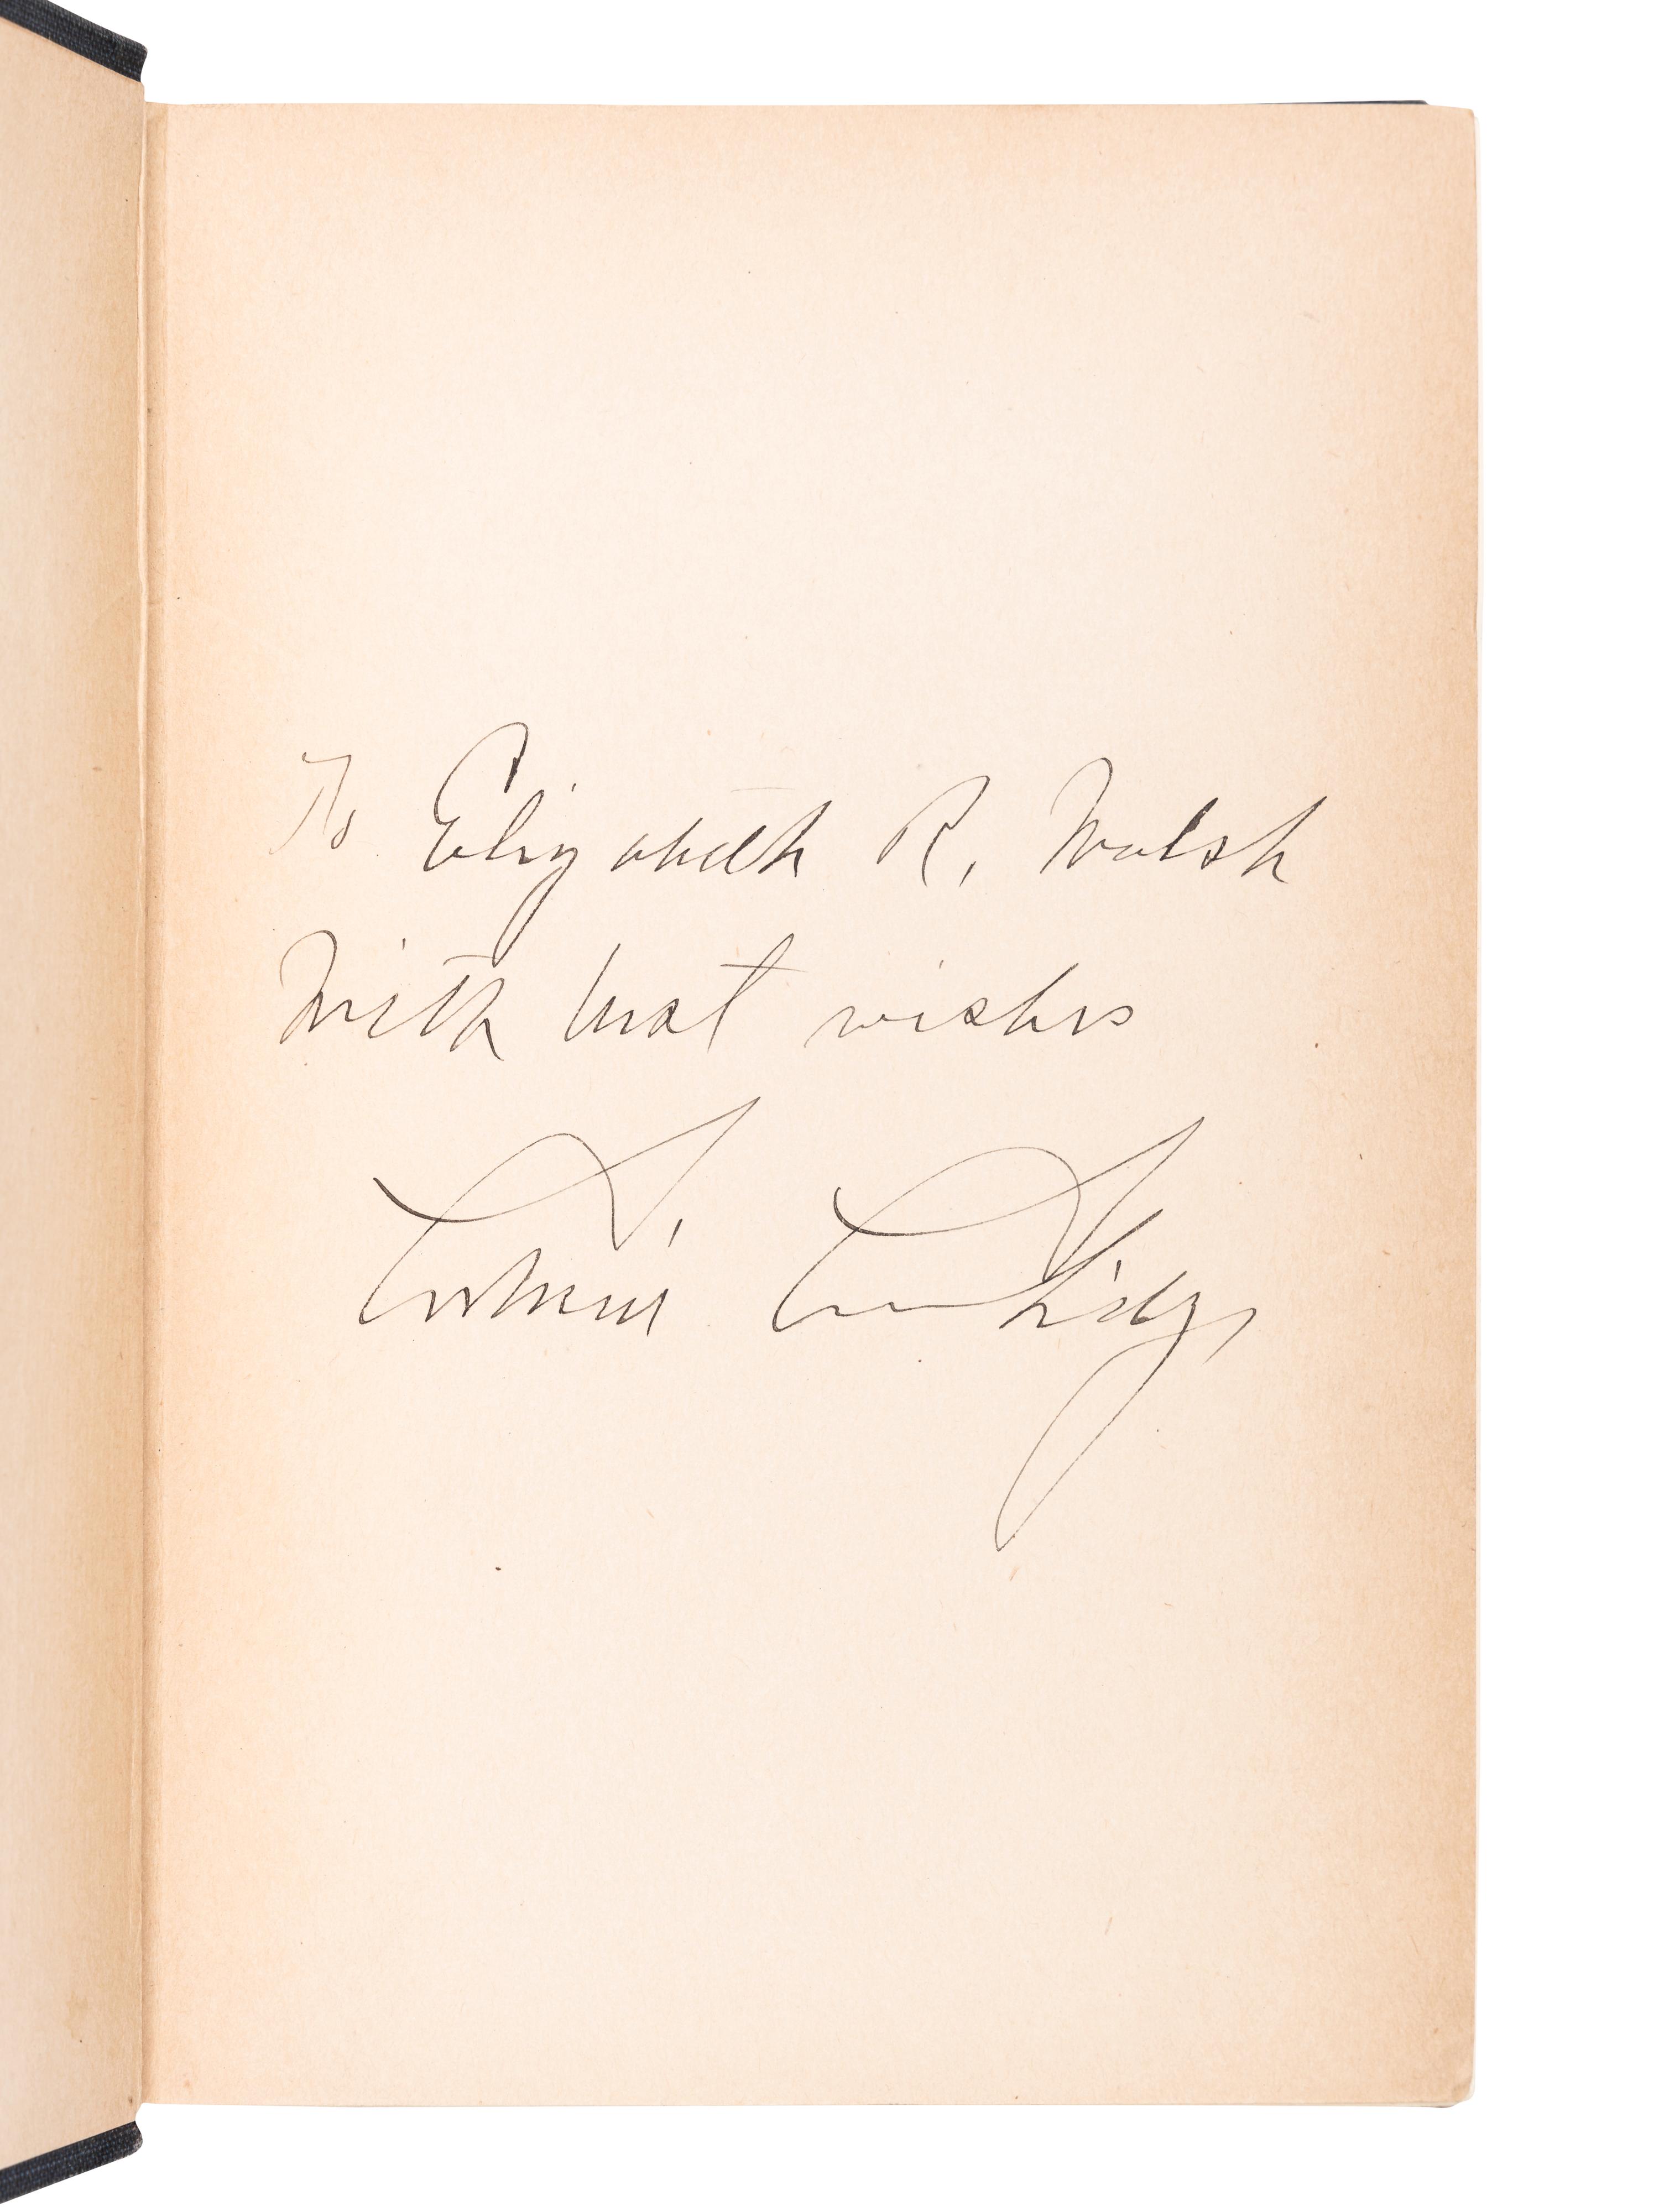 To Elizabeth R. Walsh
With best wishes
Calvin Coolidge